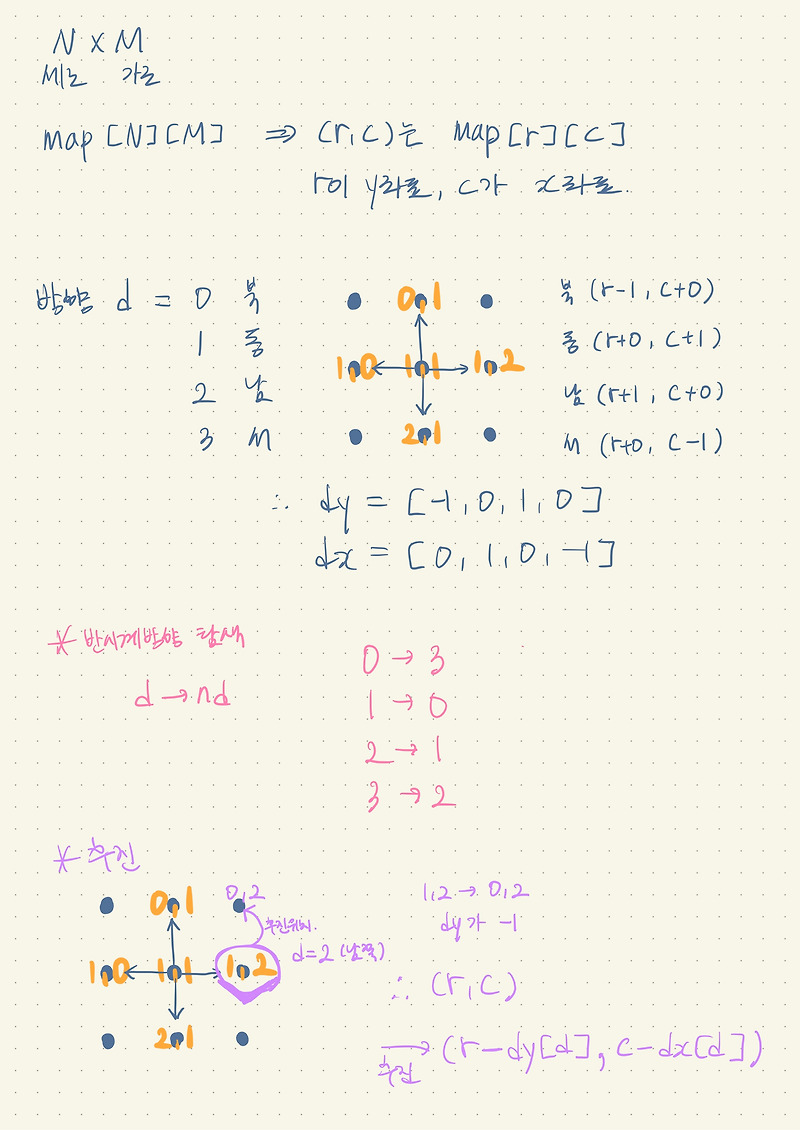 N x M
세로 가로
map[N][M] ⇒ (r,c)는 map[r][c]
r이 y좌표, c가 x좌표.
방향 d = 0 북
1 동
2 남
3 서
0,1
1,0 1,1 1,2
2,1
북 (r-1, c+0)
동 (r+0, c+1)
남 (r+1, c+0)
서 (r+0, c-1)
∴ dy = [-1, 0, 1, 0]
dx = [0, 1, 0, -1]
* 반시계방향 탐색
d → nd
0 → 3
1 → 0
2 → 1
3 → 2
* 후진
0,1 0,2
후진위치.
d=2 (남쪽)
1,0 1,1 1,2
2,1
1,2 → 0,2
dy가 -1
∴ (r,c)
→ (r-dy[d], c-dx[d])
후진